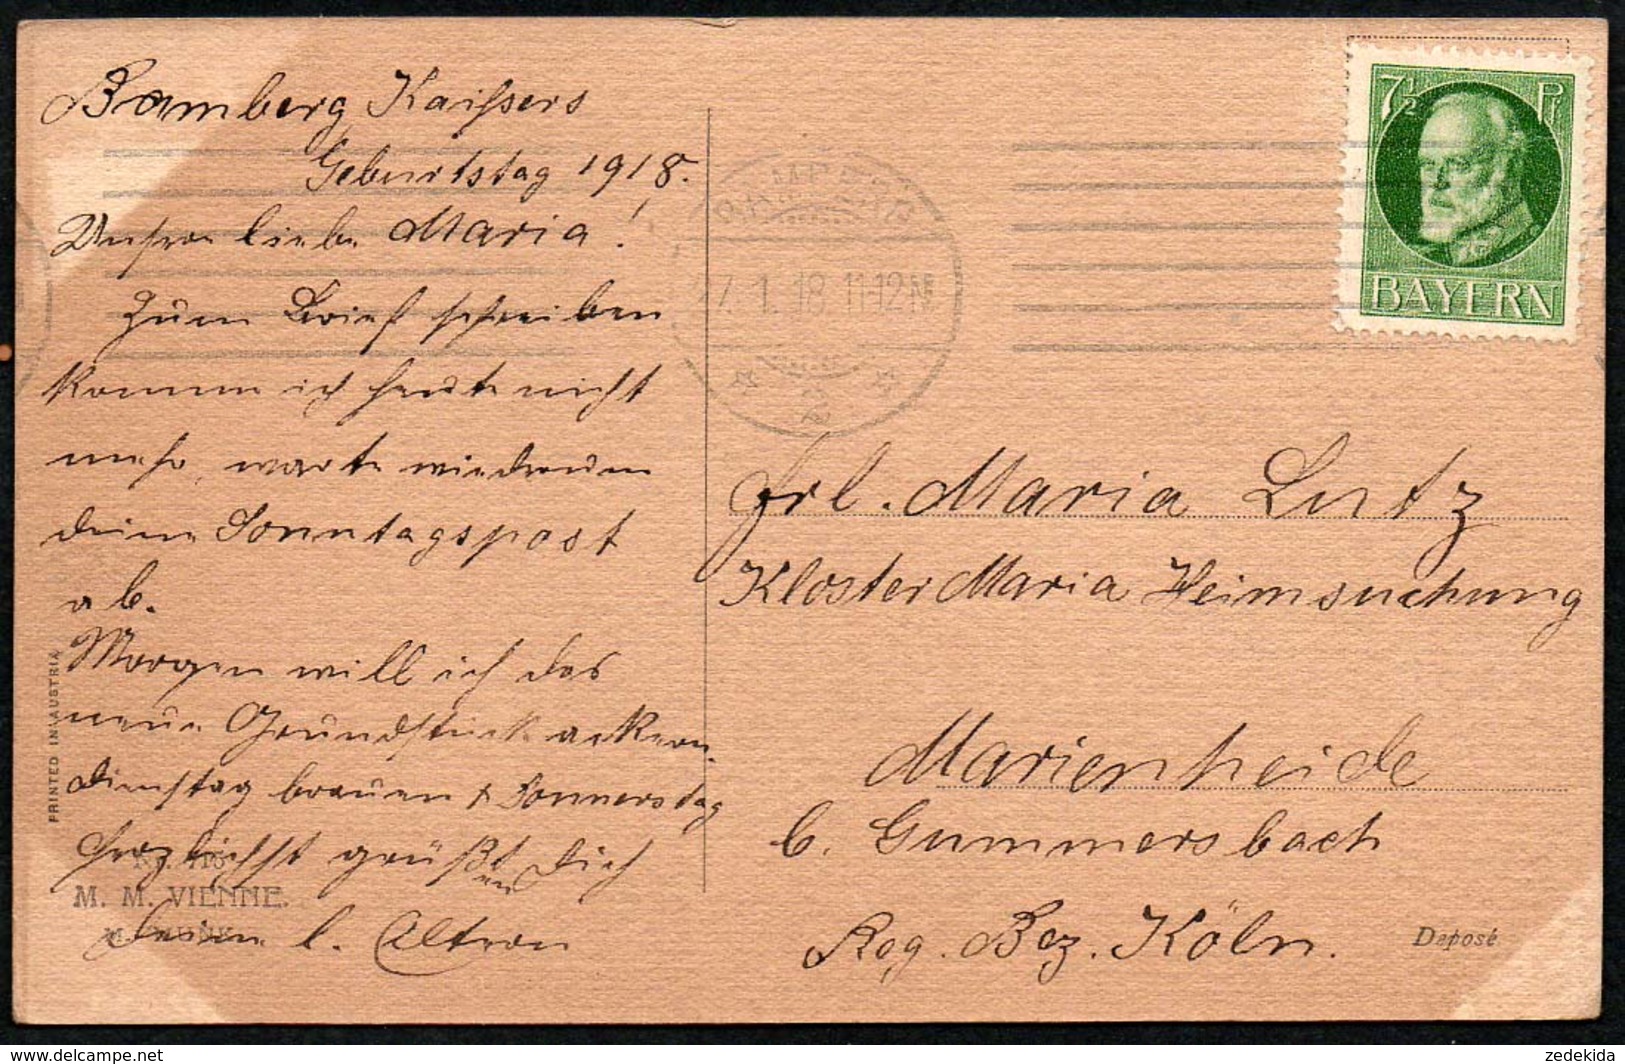 Bamberg Kaisers
Geburtstag 1918.
Unsere liebe Maria!
Zum Brief schreiben
komme ich heute nicht
mehr, warte wiederum
deine Sonntagspost
ab.
Morgen will ich das
neue Grundstück ackern.
Dienstag brauen & Donnerstag
herzlichst grüßen Dich
Deine l. Eltern
PRINTED IN AUSTRIA
M. M. VIENNE.
BAMBERG
27.1.18.11-12N
2
7½ Pf
BAYERN
Frl. Maria Lutz
Kloster Maria Heimsuchung
Marienheide
b. Gummersbach
Reg. Bez. Köln.
Deposé
zedekida